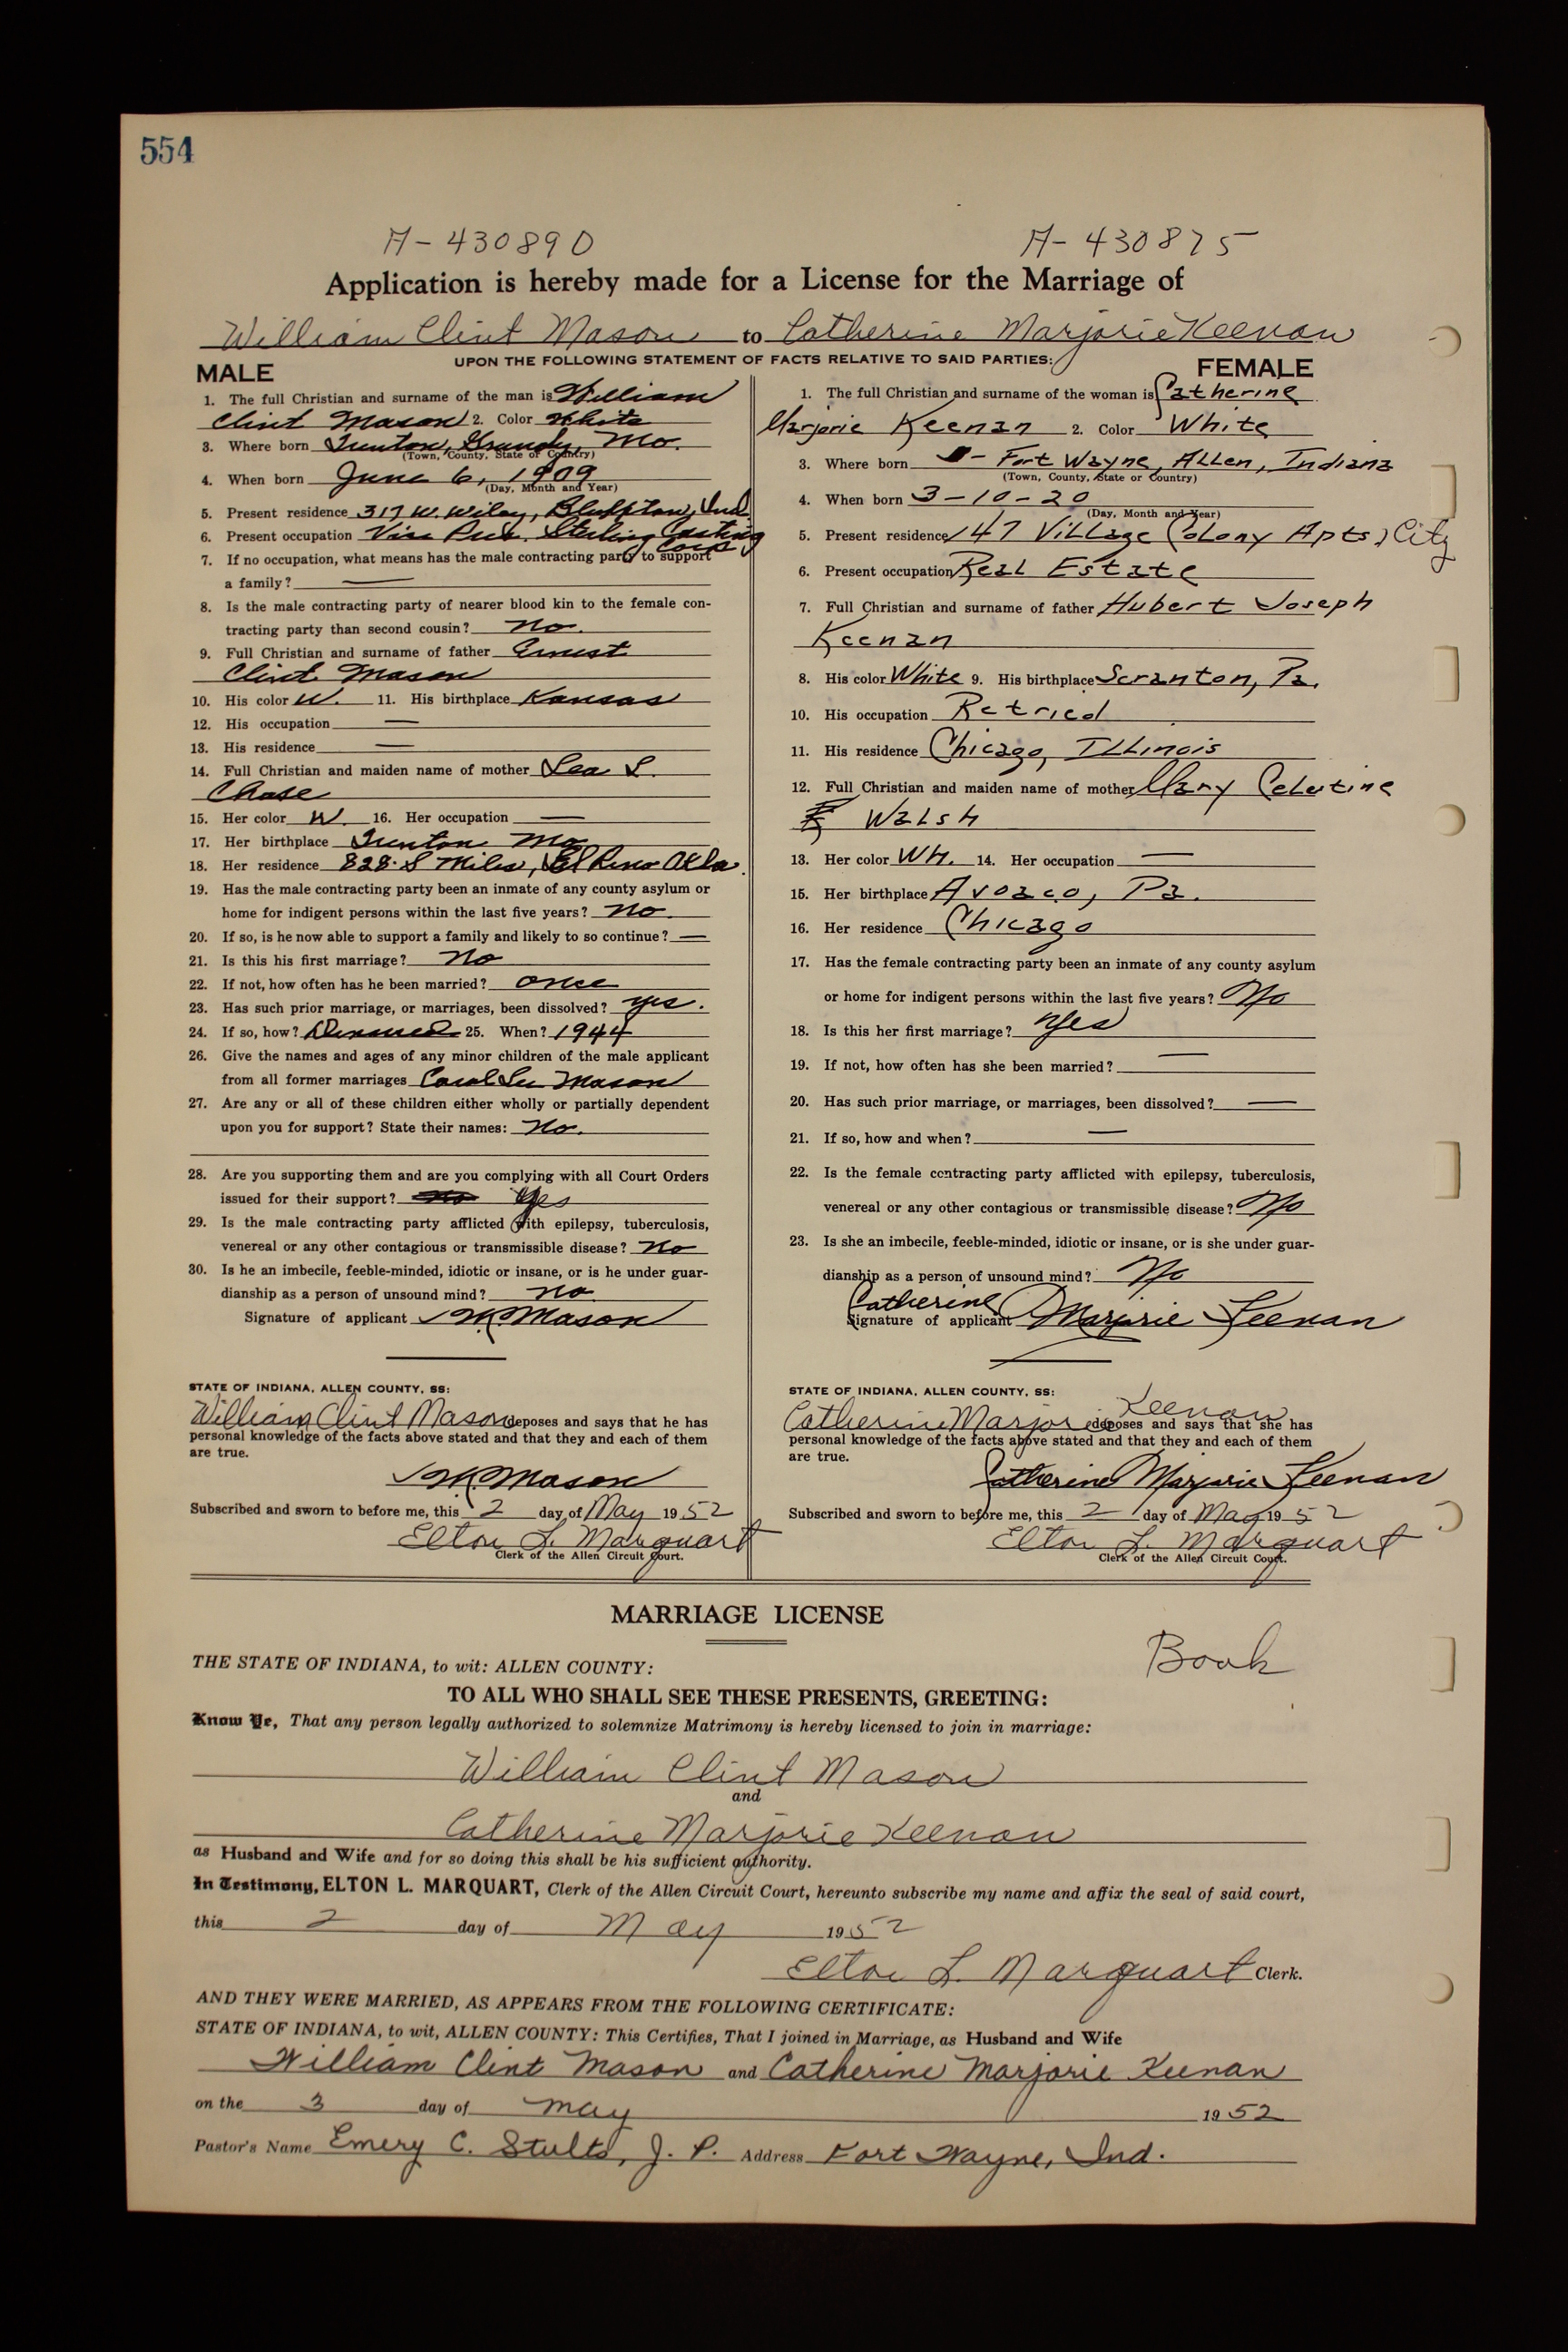 554
A-430890
A-430875
Application is hereby made for a License for the Marriage of
William Clint Mason to Catherine Marjorie Keenan
UPON THE FOLLOWING STATEMENT OF FACTS RELATIVE TO SAID PARTIES:
MALE
1. The full Christian and surname of the man is William
Clint Mason 2. Color White
3. Where born Trenton, Grundy, Mo.
(Town, County, State of Country)
4. When born June 6, 1909
(Day, Month and Year)
5. Present residence 317 W. Wiley, Bluffton, Ind
6. Present occupation Vice Pres. Sterling Casting
Corp
7. If no occupation, what means has the male contracting party to support
a family? —
8. Is the male contracting party of nearer blood kin to the female con-
tracting party than second cousin? No.
9. Full Christian and surname of father Ernest
Clint Mason
10. His color W. 11. His birthplace Kansas
12. His occupation —
13. His residence —
14. Full Christian and maiden name of mother Lea L.
Chase
15. Her color W 16. Her occupation —
17. Her birthplace Trenton Mo
18. Her residence 828 S Miles, El Reno Okla.
19. Has the male contracting party been an inmate of any county asylum or
home for indigent persons within the last five years? No
20. If so, is he now able to support a family and likely to so continue? —
21. Is this his first marriage? No
22. If not, how often has he been married? once
23. Has such prior marriage, or marriages, been dissolved? yes.
24. If so, how? Divorced 25. When? 1944
26. Give the names and ages of any minor children of the male applicant
from all former marriages Carol Lu Mason
27. Are any or all of these children either wholly or partially dependent
upon you for support? State their names: No.
28. Are you supporting them and are you complying with all Court Orders
issued for their support? no Yes
29. Is the male contracting party afflicted with epilepsy, tuberculosis,
venereal or any other contagious or transmissible disease? No
30. Is he an imbecile, feeble-minded, idiotic or insane, or is he under guar-
dianship as a person of unsound mind? no
Signature of applicant Mason
STATE OF INDIANA, ALLEN COUNTY, SS:
William Clint Mason deposes and says that he has
personal knowledge of the facts above stated and that they and each of them
are true.
Mason
Subscribed and sworn to before me, this 2 day of May 1952
Elton L. Marquart
Clerk of the Allen Circuit Court.
FEMALE
1. The full Christian and surname of the woman is Catherine
Marjorie Keenan 2. Color White
3. Where born - Fort Wayne, Allen, Indiana
(Town, County, State or Country)
4. When born 3-10-20
(Day, Month and Year)
5. Present residence 147 Village Colony Apts, City
6. Present occupation Real Estate
7. Full Christian and surname of father Hubert Joseph
Keenan
8. His color White 9. His birthplace Scranton, Pa.
10. His occupation Retried
11. His residence Chicago, Illinois
12. Full Christian and maiden name of mother Mary Celestine
Walsh
13. Her color Wh. 14. Her occupation —
15. Her birthplace Avoaco, Pa.
16. Her residence Chicago
17. Has the female contracting party been an inmate of any county asylum
or home for indigent persons within the last five years? No
18. Is this her first marriage? Yes
19. If not, how often has she been married? —
20. Has such prior marriage, or marriages, been dissolved? —
21. If so, how and when? —
22. Is the female contracting party afflicted with epilepsy, tuberculosis,
venereal or any other contagious or transmissible disease? No
23. Is she an imbecile, feeble-minded, idiotic or insane, or is she under guar-
dianship as a person of unsound mind? No
Signature of applicant Catherine Marjorie Keenan
STATE OF INDIANA, ALLEN COUNTY, SS:
Catherine Marjorie Keenan deposes and says that she has
personal knowledge of the facts above stated and that they and each of them
are true.
Catherine Marjorie Keenan
Subscribed and sworn to before me, this 2 day of May 1952
Elton L. Marquart
Clerk of the Allen Circuit Court.
MARRIAGE LICENSE
Book
THE STATE OF INDIANA, to wit: ALLEN COUNTY:
TO ALL WHO SHALL SEE THESE PRESENTS, GREETING:
Know Ye, That any person legally authorized to solemnize Matrimony is hereby licensed to join in marriage:
William Clint Mason
and
Catherine Marjorie Keenan
as Husband and Wife and for so doing this shall be his sufficient authority.
In Testimony, ELTON L. MARQUART, Clerk of the Allen Circuit Court, hereunto subscribe my name and affix the seal of said court,
this 2 day of May 1952
Elton L. Marquart Clerk.
AND THEY WERE MARRIED, AS APPEARS FROM THE FOLLOWING CERTIFICATE:
STATE OF INDIANA, to wit, ALLEN COUNTY: This Certifies, That I joined in Marriage, as Husband and Wife
William Clint Mason and Catherine Marjorie Keenan
on the 3 day of May 1952
Pastor's Name Emery C. Stults, J. P. Address Fort Wayne, Ind.